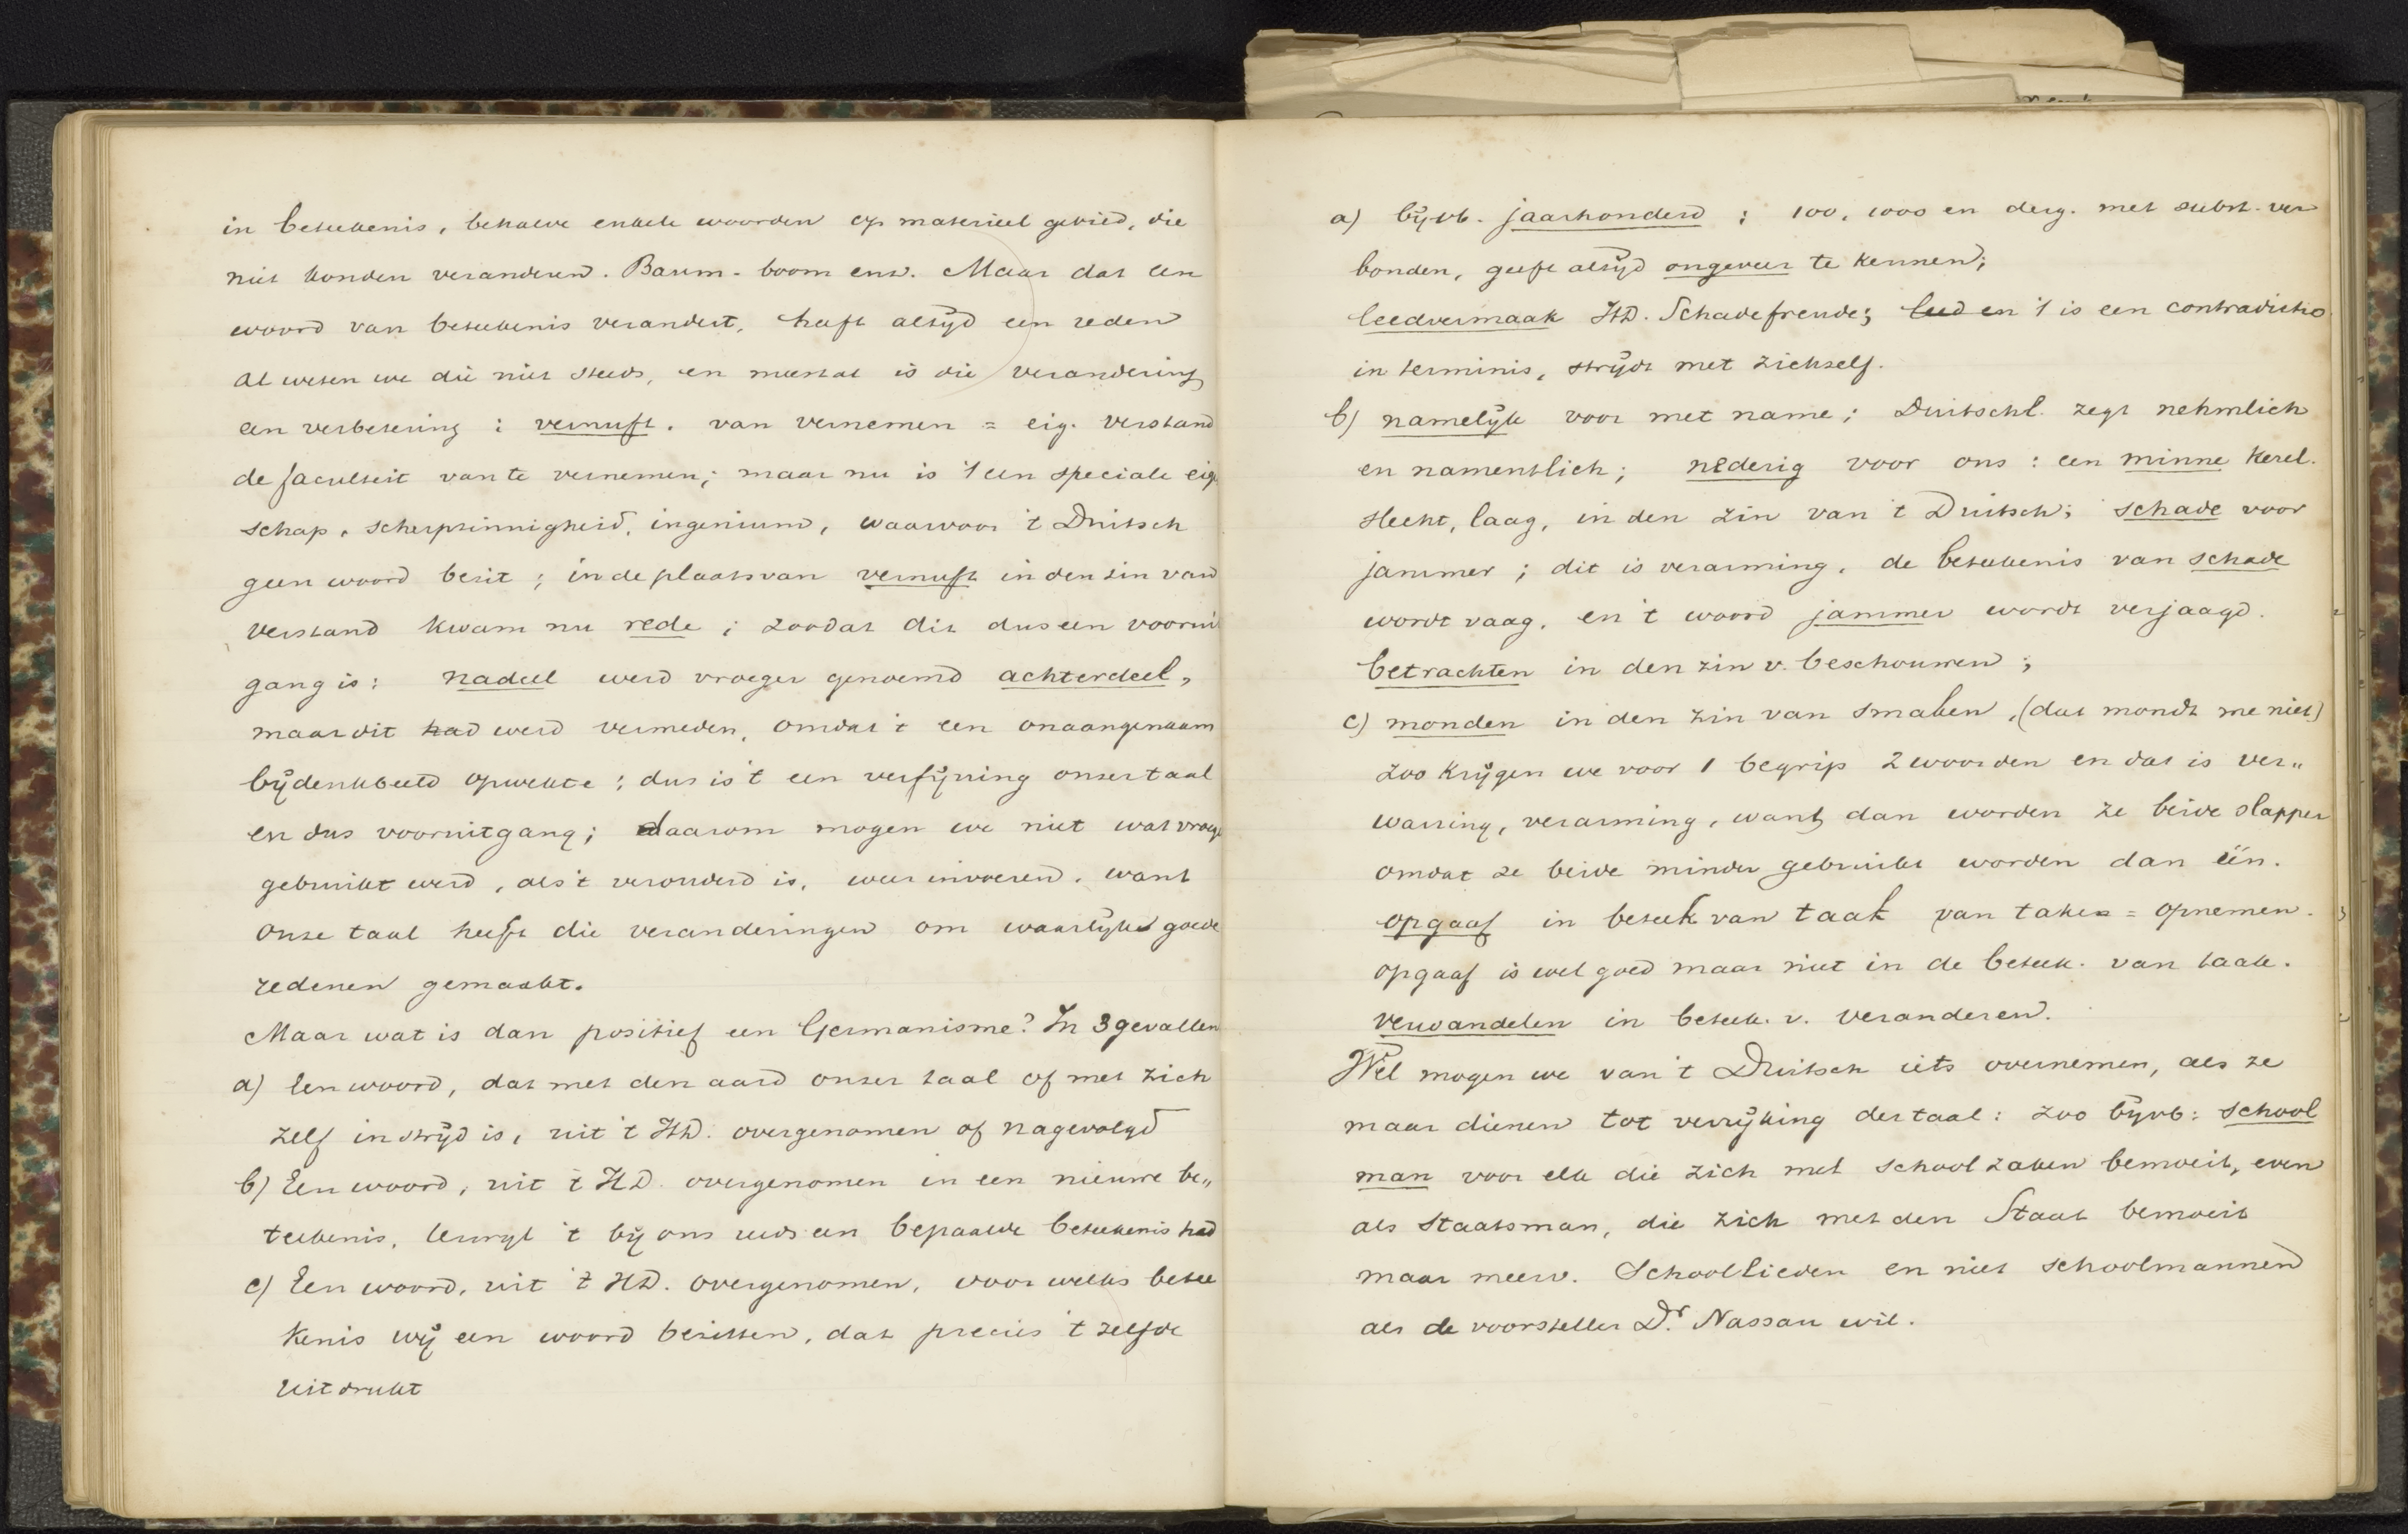 in beteekenis, behalve enkele woorden op materieel gebied, die
niet konden veranderen. Baum-boom enz. Maar dat een
woord van beteekenis verandert, heeft altijd een reden
al weten we die niet steeds, en meestal is die verandering
een verbetering : vernuft. van vernemen = eig. verstand
de faculteit van te vernemen; maar nu is 't een speciale eig
schap, scherpzinnigheid, ingenium, waarvoor 't Duitsch
geen woord bezit ; in de plaats van vernuft in den zin van
verstand kwam nu rede ; zoodat dit dus een voorui
gang is : nadeel werd vroeger genoemd achterdeel,
maar dit had werd vermeden, omdat 't een onaangenaam
bijdenkbeeld opwekte ; dus is 't een verfijning onzer taal
en dus vooruitgang; daarom mogen we niet wat vroeg
gebruikt werd, als 't verouderd is, weer invoeren, want
onze taal heeft die veranderingen om waarlijk goede
redenen gemaakt.
Maar wat is dan positief een Germanisme? In 3 gevallen
a) Een woord, dat met den aard onzer taal of met zich
zelf in strijd is, uit 't HD. overgenomen of nagevolgd
b) Een woord, uit 't HD. overgenomen in een nieuwe be„
teekenis, terwijl 't bij ons reeds een bepaalde beteekenis had
c) Een woord, uit 't HD. overgenomen, voor welks betee
kenis wij een woord bezitten, dat precies 't zelfde
uitdrukt
a) bijvb. jaarhonderd ; 100, 1000 en derg. met subst. ver
bonden, geeft altijd ongeveer te kennen;
leedvermaak HD. Schadefreude; leed en 't is een contradictio
in terminis, strijdt met zichzelf.
b) namelijk voor met name ; Duitschl. zegt nehmlich
en namentlich ; nederig voor ons : een minne kerel.
slecht, laag, in den zin van 't Duitsch ; schade voor
jammer ; dit is verarming, de beteekenis van schade
wordt vaag, en 't woord jammer wordt verjaagd.
betrachten in den zin v. beschouwen ;
c) monden in den zin van smaken, (dat mondt me niet)
zoo krijgen we voor 1 begrip 2 woorden en dat is ver„
warring, verarming, want dan worden ze beide slapper
omdat ze beide minder gebruikt worden dan één.
opgaaf in beteek van taak van taken = opnemen.
opgaaf is wel goed maar niet in de beteek. van taak.
verwandelen in beteek. v. veranderen.
Wel mogen we van 't Duitsch iets overnemen, als ze
maar dienen tot verrijking der taal : zoo bijvb : school
man voor elk die zich met schoolzaken bemoeit, even
als Staatsman, die zich met den Staat bemoeit
maar meerv. Schoollieden en niet schoolmannen
als de voorsteller Dr. Nassau wil.